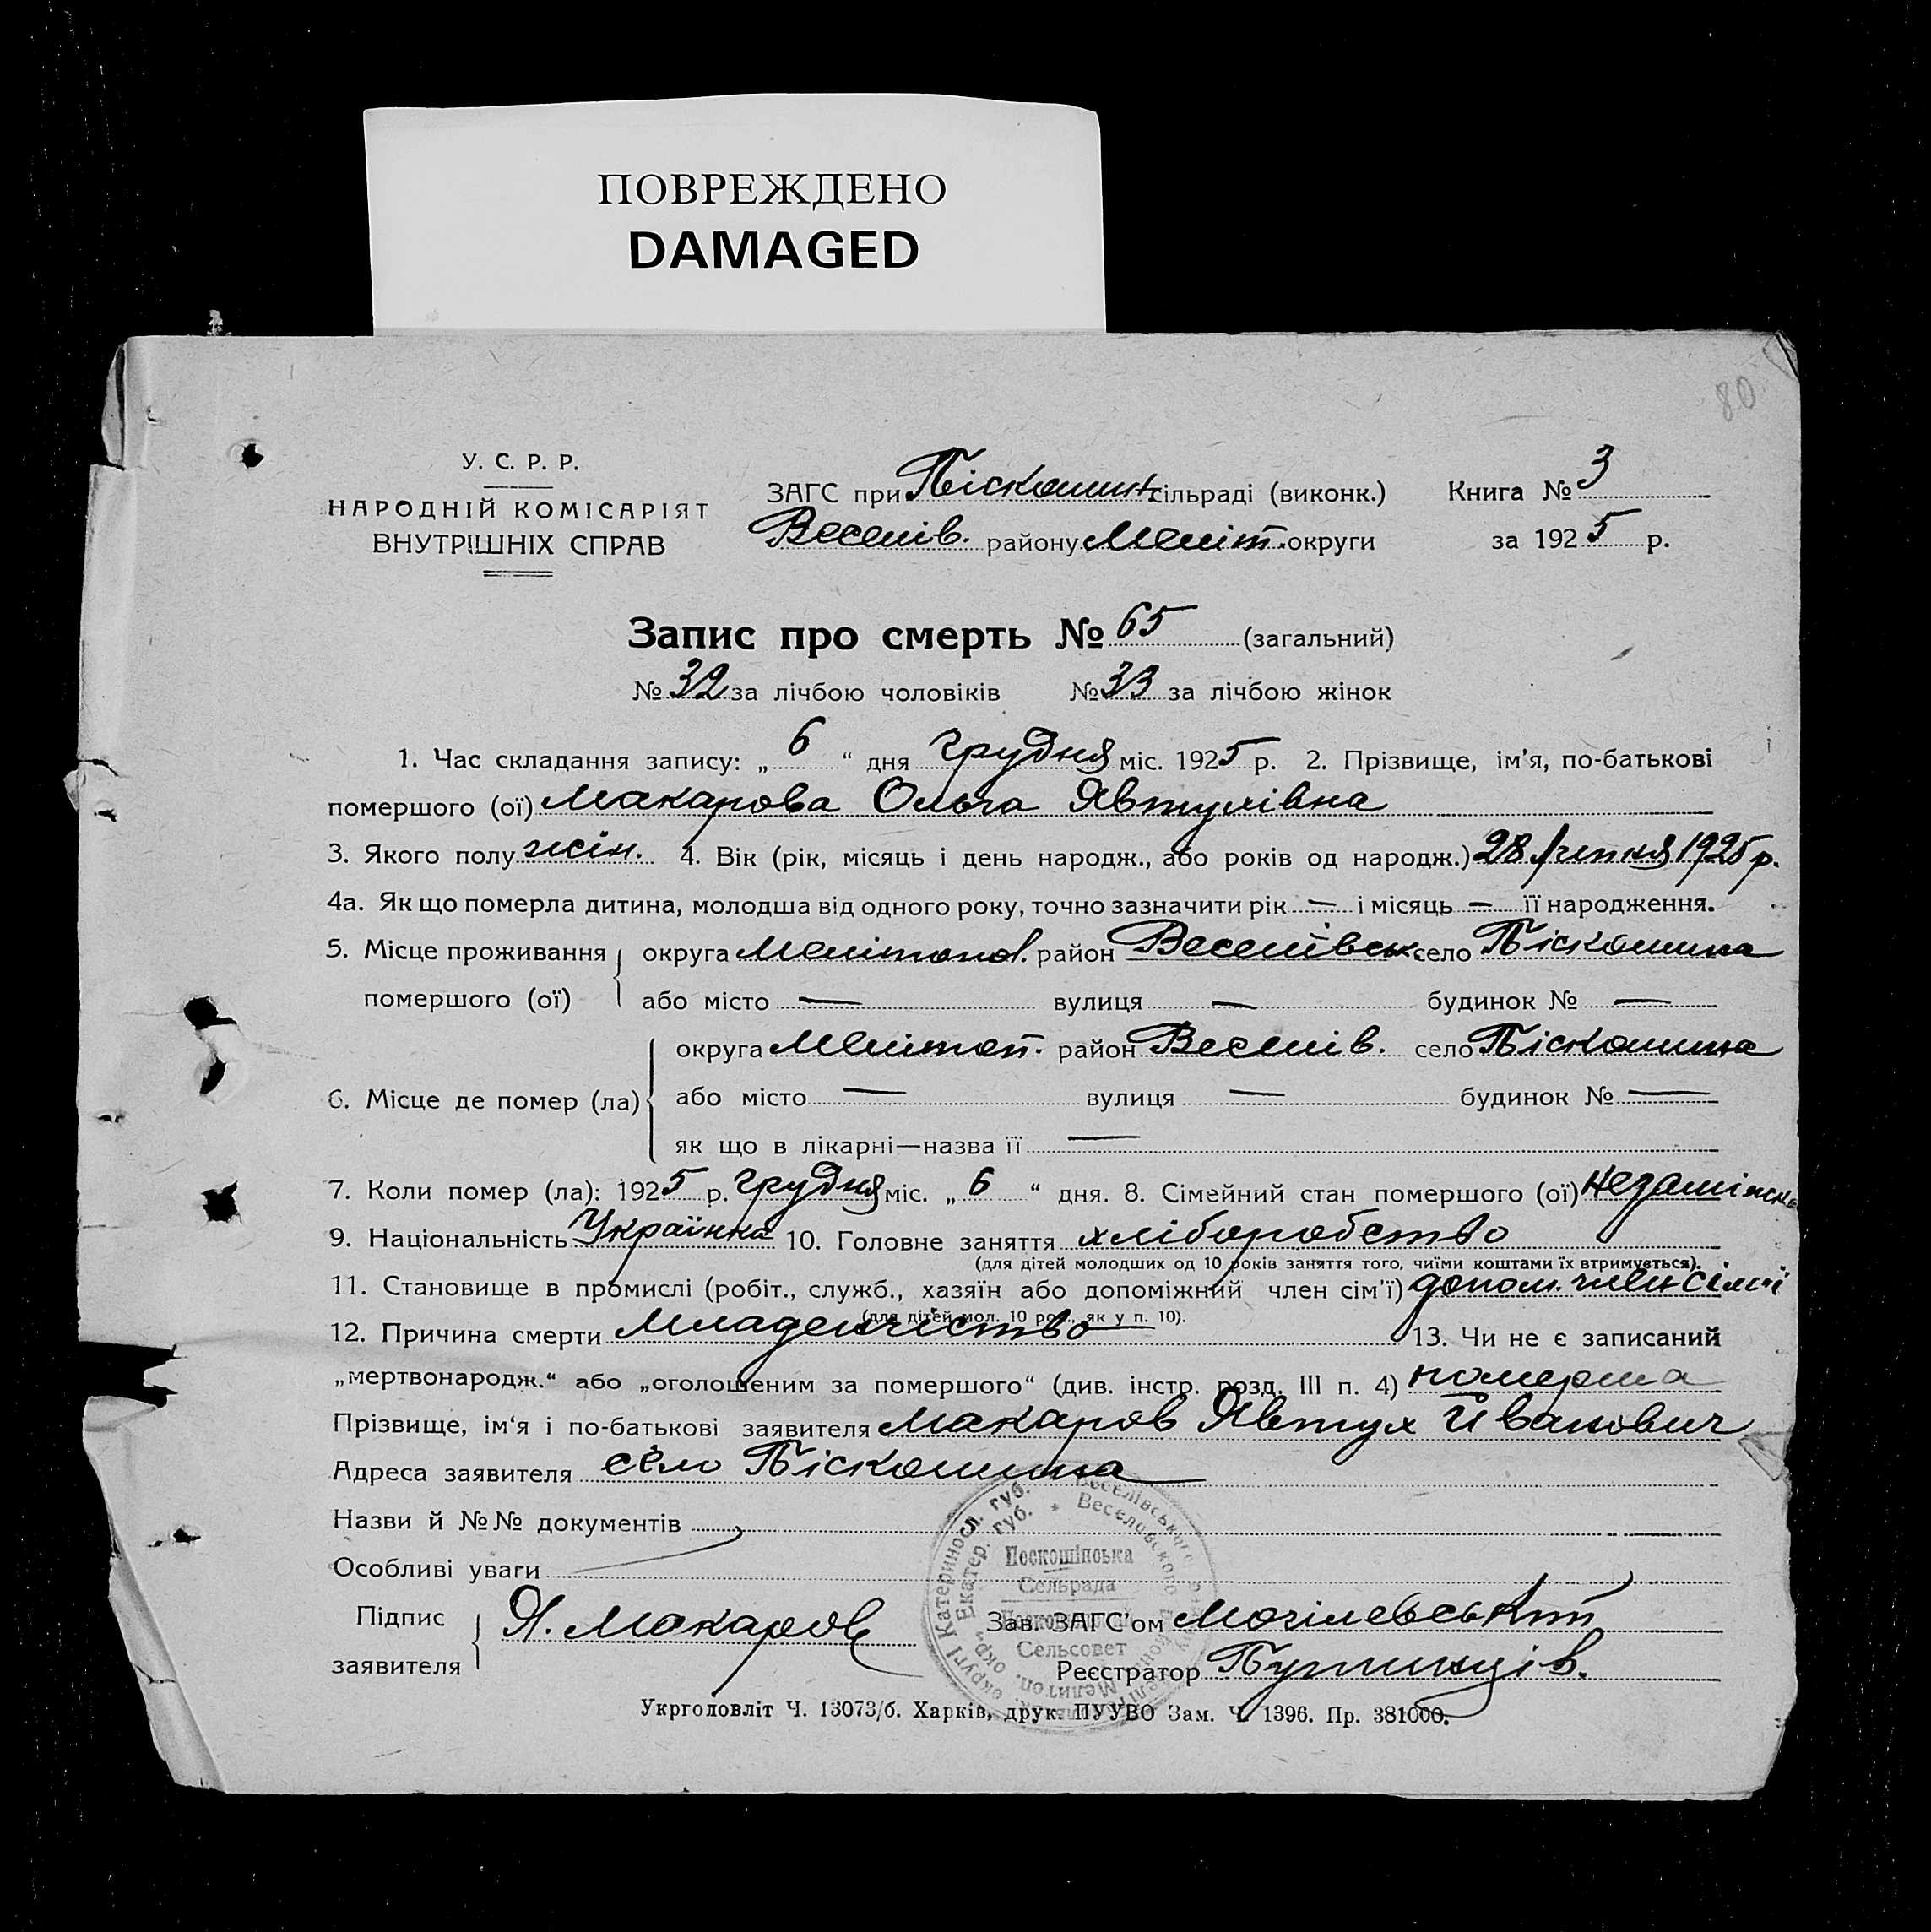 ПОВРЕЖДЕНО
DAMAGED
80
У. С. Р. Р.
НАРОДНІЙ КОМІСАРІЯТ
ВНУТРІШНІХ СПРАВ
ЗАГС при Піскошин. сільраді (виконк.) Книга № 3
Веселів. району Меліт. округи за 1925 р.
Запис про смерть № 65 (загальний)
№ 32 за лічбою чоловіків № 33 за лічбою жінок
1. Час складання запису: „ 6 “ дня грудня міс. 1925 р. 2. Прізвище, ім'я, по-батькові
помершого (ої) Макарова Ольга Явтухівна
3. Якого полу жін. 4. Вік (рік, місяць і день народж., або років од народж.) 28 липня 1925 р.
4а. Як що померла дитина, молодша від одного року, точно зазначити рік — і місяць — її народження.
5. Місце проживання округа Мелітопол. район Веселівськ. село Піскошина
помершого (ої) або місто — вулиця — будинок № —
округа Мелітоп. район Веселів. село Піскошина
6. Місце де помер (ла) або місто — вулиця — будинок № —
як що в лікарні—назва її —
7. Коли помер (ла): 1925 р. грудня міс. „ 6 “ дня. 8. Сімейний стан помершого (ої)
9. Національність Українка 10. Головне заняття хліборобство
(для дітей молодших од 10 років заняття того, чиїми коштами їх втримується).
11. Становище в промислі (робіт., служб., хазяїн або допоміжний член сім'ї) допом. член сімї
(для дітей мол. 10 рок., як у п. 10).
12. Причина смерти Младенчіство 13. Чи не є записаний
„мертвонародж.“ або „оголошеним за помершого“ (див. інстр. розд. III п. 4) померша
Прізвище, ім'я і по-батькові заявителя Макаров Явтух Іванович
Адреса заявителя село Піскошина
Назви й №№ документів
Особливі уваги
Підпис
заявителя Я. Макаров
Зав. ЗАГС'ом Могілевський
Реєстратор
Катериносл. губ.
Екатер. губ.
Веселівського
Веселовского
Пескошінська
Сельрада
Сельсовет
Мелитоп. окр.
Укрголовліт Ч. 13073/б. Харків, друк. ПУУВО Зам. Ч. 1396. Пр. 381000.